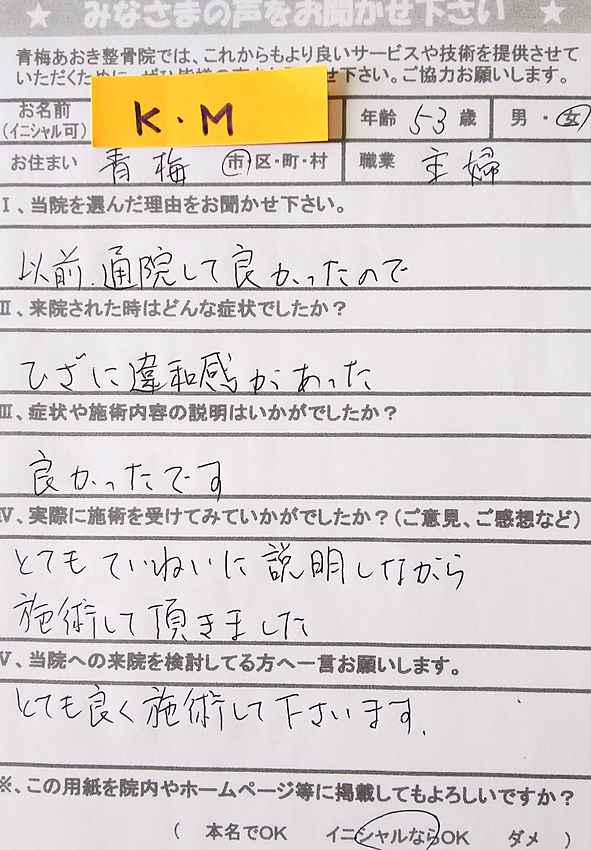 ★ みなさまの声をお聞かせ下さい ★
青梅あおき整骨院では、これからもより良いサービスや技術を提供させて
いただくために、下さい。ご協力お願いします。
お名前 (イニシャル可) K.M 年齢 53 歳 男・女
お住まい 青梅 市区・町・村 職業 主婦
Ⅰ、当院を選んだ理由をお聞かせ下さい。
以前、通院して良かったので
Ⅱ、来院された時はどんな症状でしたか？
ひざに違和感があった
Ⅲ、症状や施術内容の説明はいかがでしたか？
良かったです
Ⅳ、実際に施術を受けてみていかがでしたか？(ご意見、ご感想など)
とてもていねいに説明しながら
施術して頂きました
Ⅴ、当院への来院を検討してる方へ一言お願いします。
とても良く施術して下さいます.
※、この用紙を院内やホームページ等に掲載してもよろしいですか？
( 本名でOK イニシャルならOK ダメ )